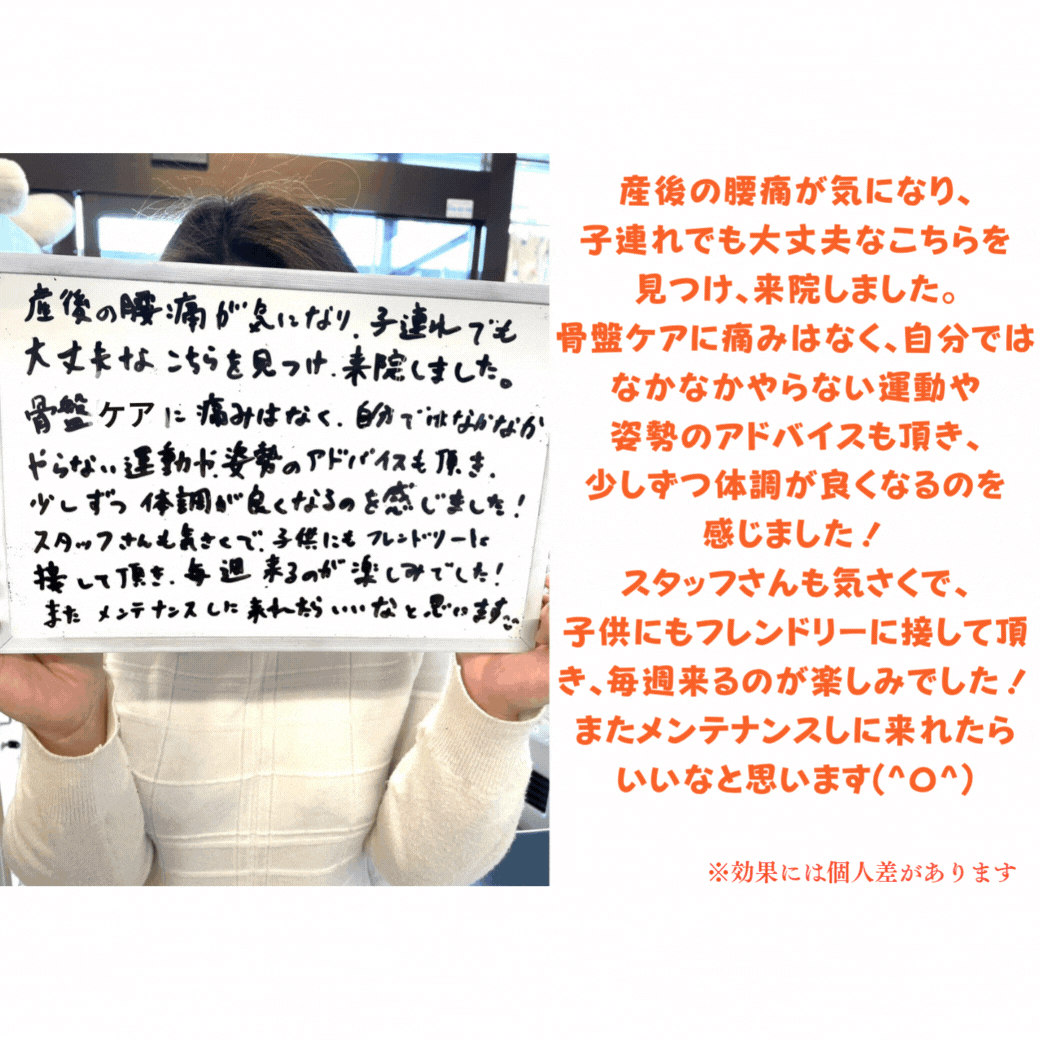 産後の腰痛が気になり、子連れでも
大丈夫な こちらを見つけ、来院しました。
骨盤ケアに痛みはなく、自分ではなかなか
やらない運動や姿勢のアドバイスも頂き、
少しずつ体調が良くなるのを感じました!
スタッフさんも気さくで、子供にもフレンドリーに
接して頂き、毎週来るのが楽しみでした!
また メンテナンスしに来れたらいいなと思います
産後の腰痛が気になり、
子連れでも大丈夫なこちらを
見つけ、来院しました。
骨盤ケアに痛みはなく、自分では
なかなかやらない運動や
姿勢のアドバイスも頂き、
少しずつ体調が良くなるのを
感じました!
スタッフさんも気さくで、
子供にもフレンドリーに接して頂
き、毎週来るのが楽しみでした!
またメンテナンスしに来れたら
いいなと思います(^O^)
※効果には個人差があります